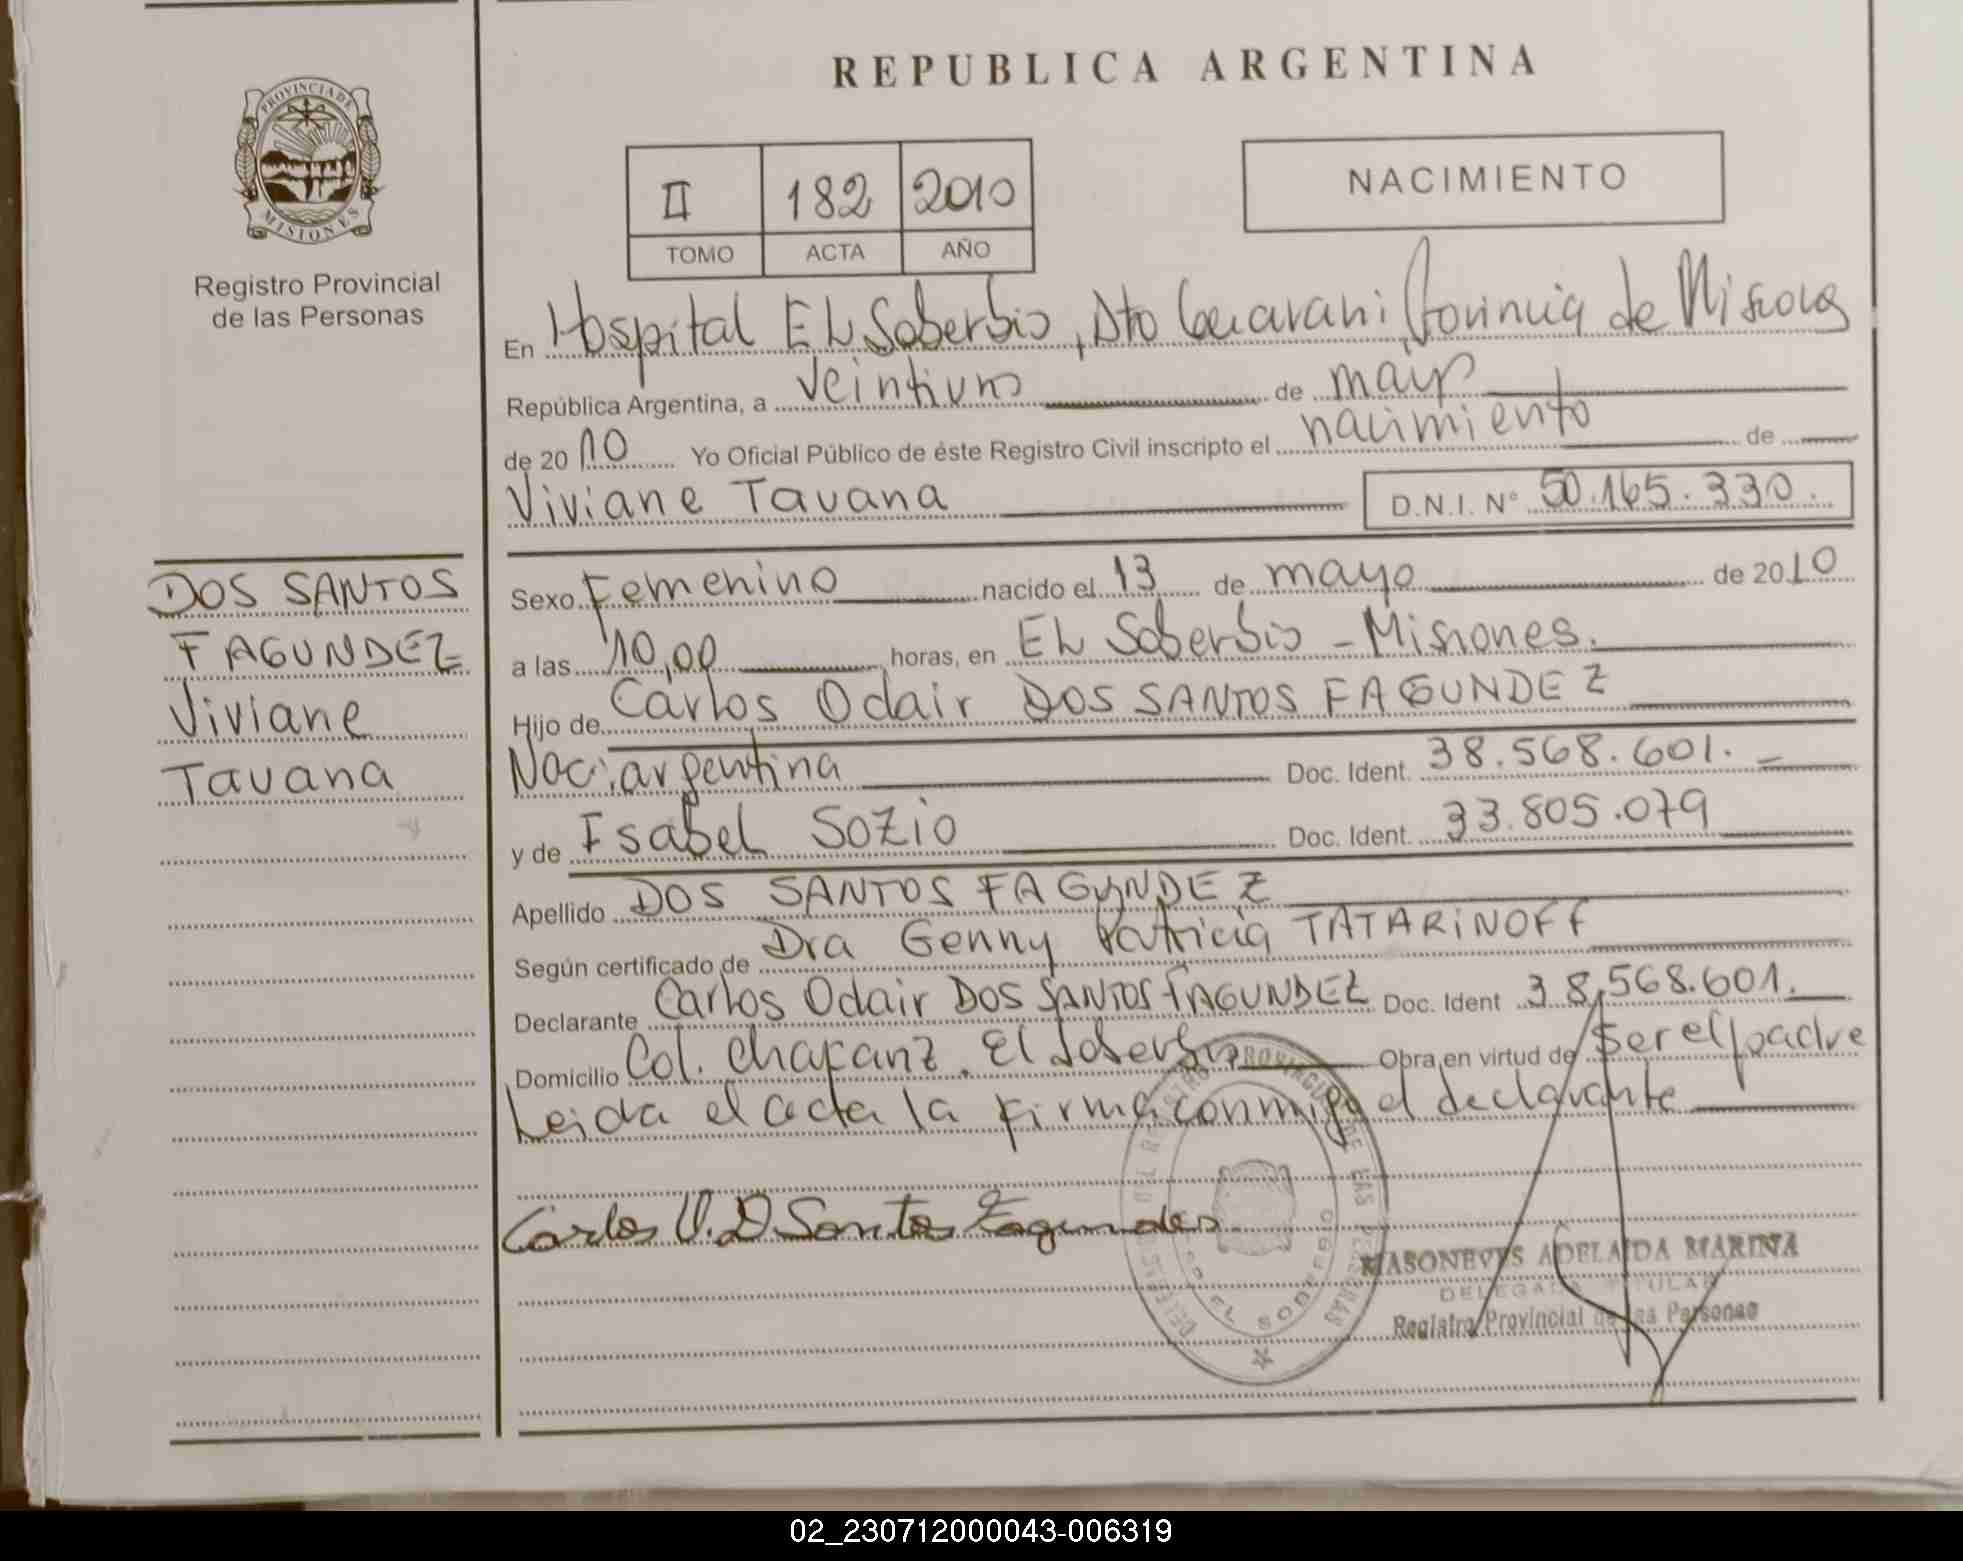 REPUBLICA ARGENTINA
PROVINCIA DE
MISIONES
Registro Provincial
de las Personas
II 182 2010
TOMO ACTA AÑO
NACIMIENTO
En Hospital EL Soberbio, Dto Guarani, Provincia de Misiones
República Argentina, a veintiuno de mayo
de 2010 Yo Oficial Público de éste Registro Civil inscripto el nacimiento de
Viviane Tauana D.N.I. Nº 50.165.330.
DOS SANTOS
FAGUNDEZ
Viviane
Tauana
Sexo Femenino nacido el 13 de mayo de 2010
a las 10,00 horas, en EL Soberbio - Misiones.
Hijo de Carlos Odair DOS SANTOS FAGUNDEZ
Nac: argentina Doc. Ident. 38.568.601.
y de Isabel SOZIO Doc. Ident. 33.805.079
Apellido DOS SANTOS FAGUNDEZ
Según certificado de Dra Genny Patricia TATARINOFF
Declarante Carlos Odair DOS SANTOS FAGUNDEZ Doc. Ident 38.568.601.
Domicilio Col. Chafariz. El Soberbio Obra en virtud de ser el padre
Leida el acta la firma conmigo el declarante
Carlos O. D Santos Fagundes
REGISTRO PROVINCIAL DE LAS PERSONAS
EL SOBERBIO
MASONEVES ADELAIDA MARINA
DELEGADA TITULAR
Registro Provincial de las Personas
02_230712000043-006319